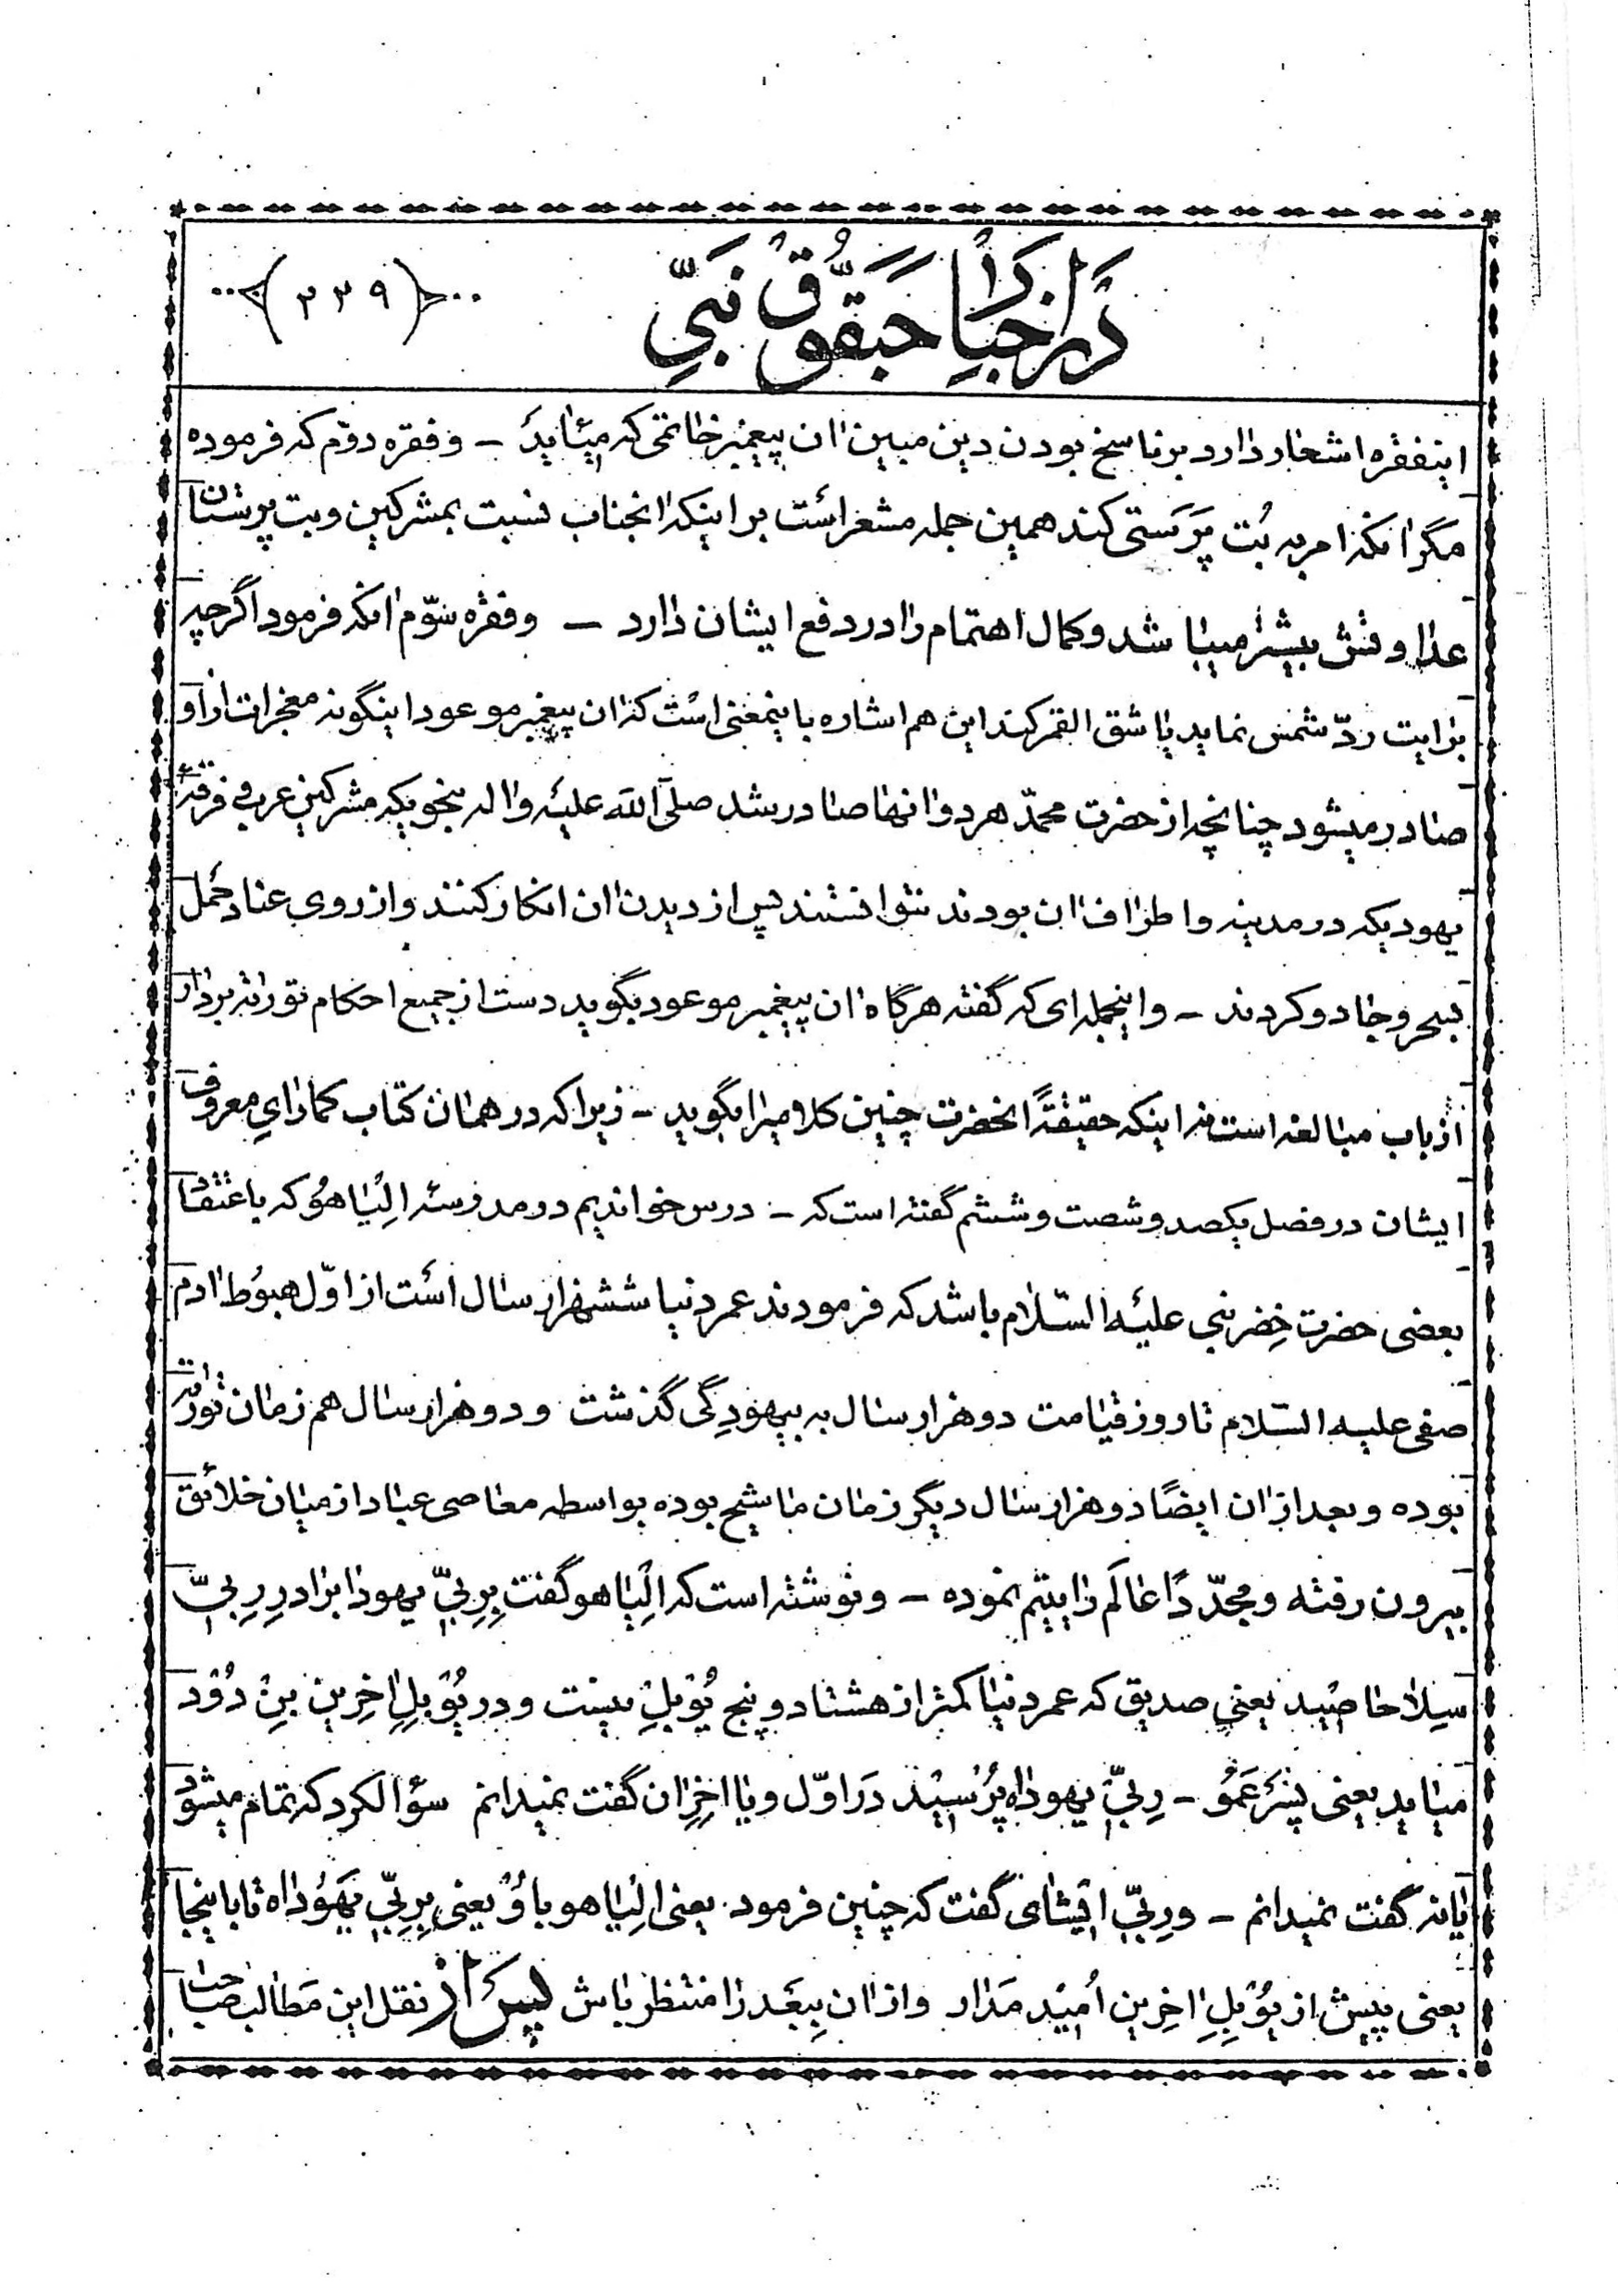 در اخبار حبقوق نبی
(۲۳۹)
اینفقره اشعار دارد بر ناسخ بودن دین مبین ان پیغمبر خاتمی که میاید – و فقره دوّم که فرموده
مگر انکه امر به بُت پَرَستی کند همین جمله مشعر است بر اینکه انجناب نسبت بمشرکین و بت پرستان
عداوتش بیشتر میباشد و کمال اهتمام را در دفع ایشان دارد – و فقره سوّم انکه فرمود اگر چه
برایت ردّ شمس نماید یا شق القمر کند این هم اشاره باینمعنی است که ان پیغمبر موعود اینگونه معجزات از او
صادر میشود چنانچه از حضرت محمّد هر دو انها صادر شد صلی الله علیه و اله بنحویکه مشرکین عرب و فرقهٔ
یهودیکه در مدینه و اطراف ان بودند نتوانستند پس از دیدن ان انکار کنند و از روی عناد حمل
بسحر و جادو کردند – و اینجمله ای که گفته هرگاه ان پیغمبر موعود بگوید دست از جمیع احکام توراة بردار
از باب مبالغه است نه اینکه حقیقةً انحضرت چنین کلامیرا بگوید – زیرا که در همان کتاب کمارای معروف
ایشان در فصل یکصد و شصت و ششم گفته است که – درس خواندیم در مدرسه الِیٰاهُو که باعتقاد
بعضی حضرت خِضر نبی علیه السّلام باشد که فرمودند عمر دنیا ششهزار سال است از اوّل هبوُط ادم
صفی علیه السّلام تا روز قیامت دو هزار سال به بیهودِگی گذشت و دو هزار سال هم زمان توراة
بوده و بعد از ان ایضًا دو هزار سال دیگر زمان ماشیح بوده بواسطه معاصی عباد از میان خلائق
بیرون رفته و مجدّدًا عالَم را یتیم نموده – و نوشته است که الِیٰاهو گفت بِرِبیّ یهودا برادرِ رِبیّ
سِلا حاصید یعنی صدیق که عمر دنیا کمتر از هشتاد و پنج یُوبِلِ نیست و در یُوبِلِ اخِرین بِن دٰوُد
میاید یعنی پسَر عَمُو – رِبیّ یهوداه پُرسید دَر اوّل و یا اخِرِ ان گفت نمیدانم سؤالکرد که تمام میشود
یا نه گفت نمیدانم – و رِبیّ اشِیٰای گفت که چنین فرمود یعنی الِیٰاهو باوُ یعنی بِرِبیّ یَهوُداه تا باینجا
یعنی پیش از یُوبِلِ اخِرین اُمید مَدار و از ان بِبَعَد را منتظر باش پسَ از نقل این مَطالب صاحب